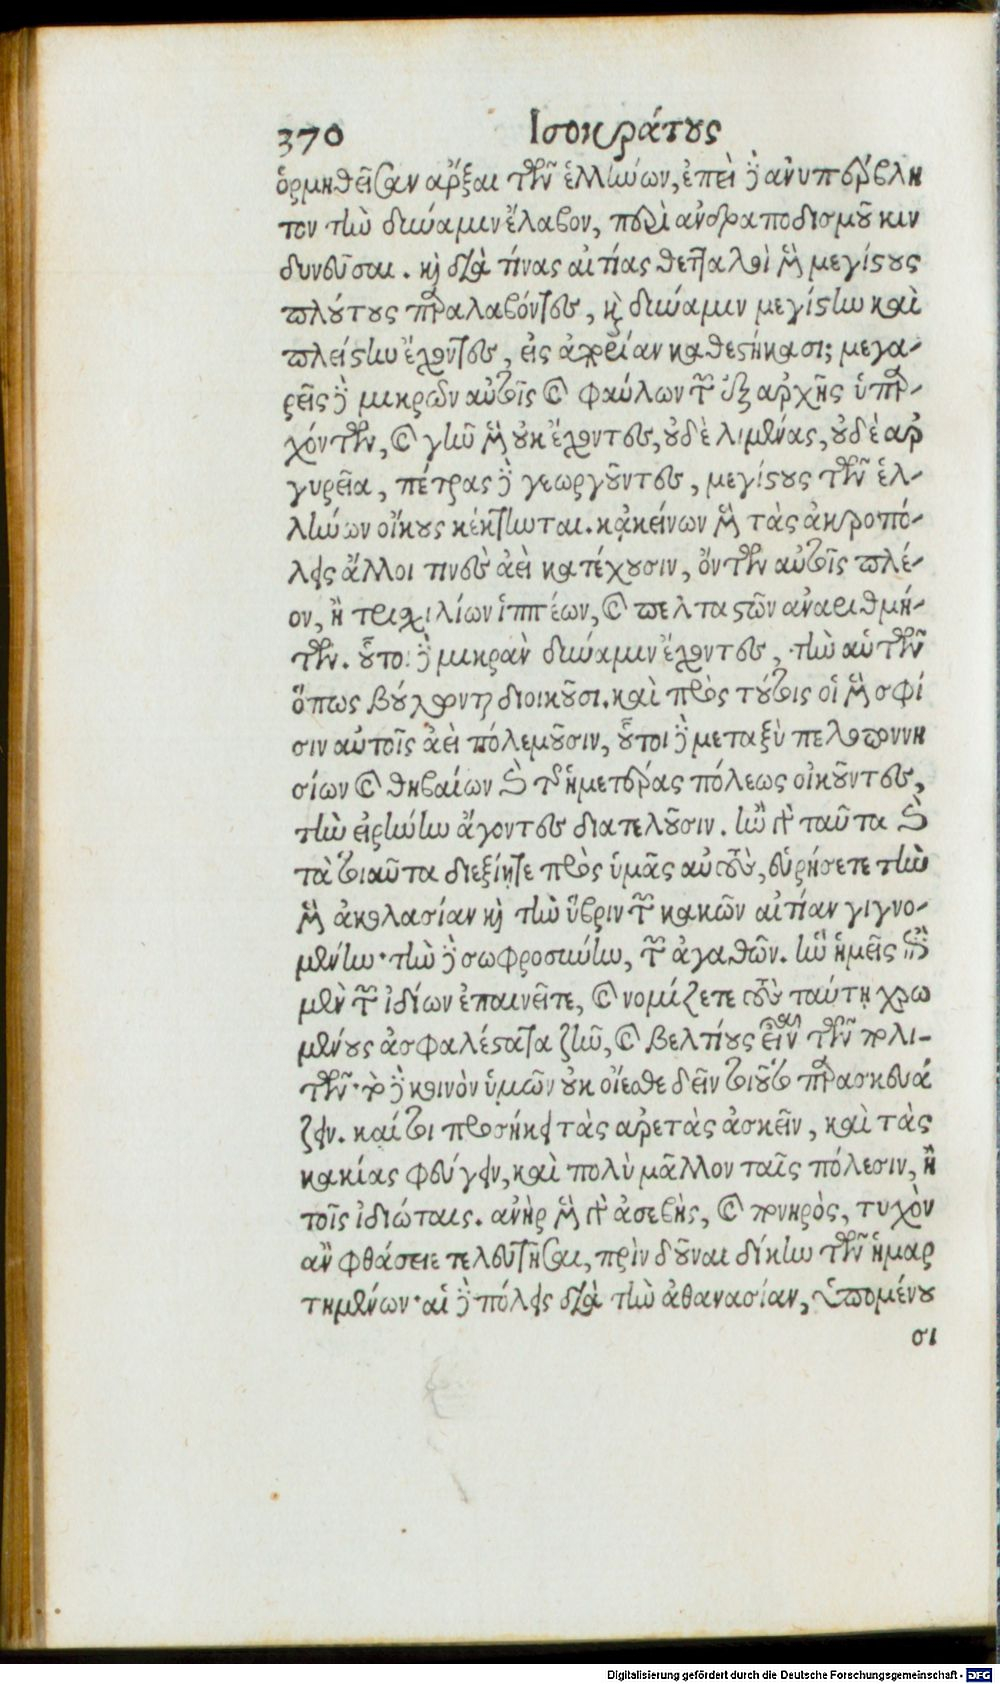 370 Ἰσοκράτους
ὁρμηθεῖσαν ἄρξαι τῶν ἑλλήνων, ἐπεὶ δὲ ἀνυπέρβλη
τον τὴν δύναμιν ἔλαβον, περὶ ἀνδραποδισμοῦ κιν
δυνεῦσαι. καὶ διὰ τίνας αἰτίας θετταλοὶ μὲν μεγίστους
πλούτους παραλαβόντες, καὶ δύναμιν μεγίστην καὶ
πλείστην ἔχοντες, εἰς ἀπορίαν καθεστήκασι; μεγα-
ρεῖς δὲ μικρῶν αὐτοῖς καὶ φαύλων τῶν ἐξ ἀρχῆς ὑπαρ-
χόντων, καὶ γῆν μὲν οὐκ ἔχοντες, οὐδὲ λιμένας, οὐδὲ ἀρ
γυρεῖα, πέτρας δὲ γεωργοῦντες, μεγίστους τῶν ἑλ-
λήνων οἴκους κέκτηνται. κἀκείνων μὲν τὰς ἀκροπό-
λεις ἄλλοι τινὲς ἀεὶ κατέχουσιν, ὄντων αὐτοῖς πλέ-
ον, ἢ τρισχιλίων ἱππέων, καὶ πελταστῶν ἀναριθμή-
των. οὗτοι δὲ μικρὰν δύναμιν ἔχοντες, τὴν αὑτῶν
ὅπως βούλονται διοικοῦσι. καὶ πρὸς τούτοις οἱ μὲν σφί
σιν αὐτοῖς ἀεὶ πολεμοῦσιν, οὗτοι δὲ μεταξὺ πελοποννη
σίων καὶ θηβαίων καὶ τῆς ἡμετέρας πόλεως οἰκοῦντες,
τὴν εἰρήνην ἄγοντες διατελοῦσιν. ἢν γὰρ ταῦτα καὶ
τὰ τοιαῦτα διεξίητε πρὸς ὑμᾶς αὐτοὺς, εὑρήσετε τὴν
μὲν ἀκολασίαν καὶ τὴν ὕβριν τῶν κακῶν αἰτίαν γιγνο-
μένην· τὴν δὲ σωφροσύνην, τῶν ἀγαθῶν. ἣν ἡμεῖς ἐπὶ
μὲν τῶν ἰδίων ἐπαινεῖτε, καὶ νομίζετε τοὺς ταύτῃ χρω
μένους ἀσφαλέστατα ζῆν, καὶ βελτίους εἶναι τῶν πολι-
τῶν· τὸ δὲ κοινὸν ὑμῶν οὐκ οἴεσθε δεῖν τοιοῦτο παρασκευά
ζειν. καίτοι προσήκει τὰς ἀρετὰς ἀσκεῖν, καὶ τὰς
κακίας φεύγειν, καὶ πολὺ μᾶλλον ταῖς πόλεσιν, ἢ
τοῖς ἰδιώταις. ἀνὴρ μὲν γὰρ ἀσεβὴς, καὶ πονηρὸς, τυχὸν
ἂν φθάσειε τελευτῆσαι, πρὶν δοῦναι δίκην τῶν ἡμαρ
τημένων· αἱ δὲ πόλεις διὰ τὴν ἀθανασίαν, ὑπομένου
σι
Digitalisierung gefördert durch die Deutsche Forschungsgemeinschaft - DFG